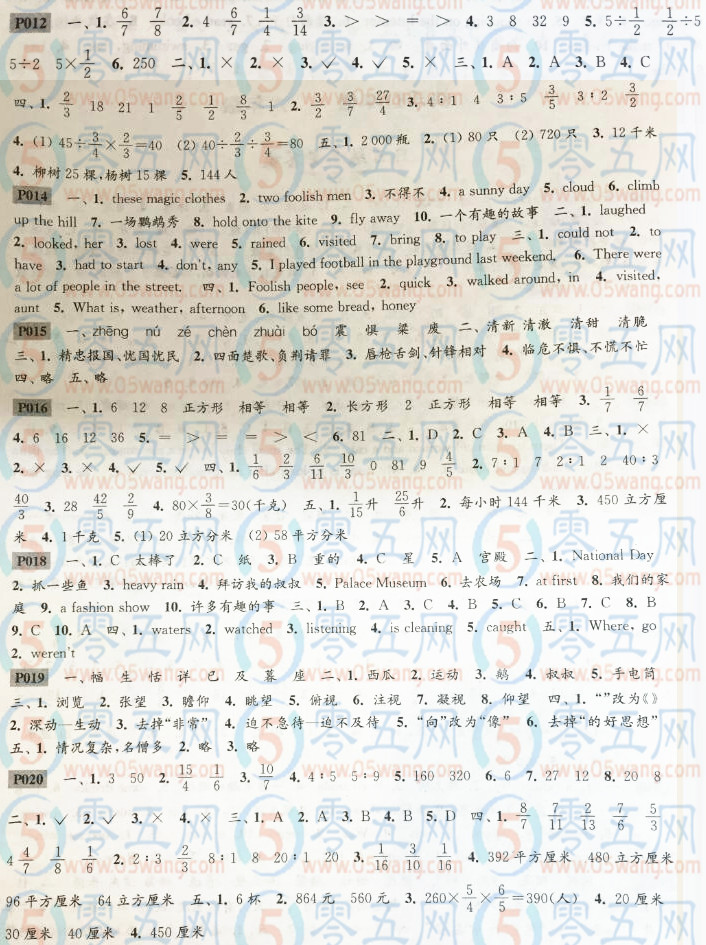 P012 一、1. 6/7 7/8 2. 4 6/7 1/4 3/14 3. > > = > 4. 3 8 32 9 5. 5÷1/2 1/2÷5
5÷2 5×1/2 6. 250 二、1. × 2. × 3. ✓ 4. ✓ 5. × 三、1. A 2. A 3. B 4. C
四、1. 2/3 18 21 1 2/5 1/2 8/3 1 2. 3/2 3/7 27/4 3. 4∶1 4 3∶5 3/5 3∶2 3/2
4. (1) 45÷3/4×2/3=40 (2) 40÷2/3÷3/4=80 五、1. 2 000瓶 2. (1) 80只 (2) 720只 3. 12千米
4. 柳树25棵,杨树15棵 5. 144人
P014 一、1. these magic clothes 2. two foolish men 3. 不得不 4. a sunny day 5. cloud 6. climb
up the hill 7. 一场鹦鹉秀 8. hold onto the kite 9. fly away 10. 一个有趣的故事 二、1. laughed
2. looked, her 3. lost 4. were 5. rained 6. visited 7. bring 8. to play 三、1. could not 2. to
have 3. had to start 4. don't, any 5. I played football in the playground last weekend. 6. There were
a lot of people in the street. 四、1. Foolish people, see 2. quick 3. walked around, in 4. visited,
aunt 5. What is, weather, afternoon 6. like some bread, honey
P015 一、zhēng nú zé chèn zhuài bó 震 惧 梁 废 二、清新 清澈 清甜 清脆
三、1. 精忠报国、忧国忧民 2. 四面楚歌、负荆请罪 3. 唇枪舌剑、针锋相对 4. 临危不惧、不慌不忙
四、略 五、略
P016 一、1. 6 12 8 正方形 相等 相等 2. 长方形 2 正方形 相等 相等 3. 1/7 6/7
4. 6 16 12 36 5. = > = = > < 6. 81 二、1. D 2. C 3. A 4. B 三、1. ×
2. × 3. × 4. ✓ 5. ✓ 四、1. 1/6 2/3 6/11 10/3 0 81 9 4/5 2. 7∶1 7 2∶1 2 40∶3
40/3 3. 28 42/5 2/9 4. 80×3/8=30(千克) 五、1. 1/15升 25/6升 2. 每小时144千米 3. 450立方厘
米 4. 1千克 5. (1) 20立方分米 (2) 58平方分米
P018 一、1. C 太棒了 2. C 纸 3. B 重的 4. C 星 5. A 宫殿 二、1. National Day
2. 抓一些鱼 3. heavy rain 4. 拜访我的叔叔 5. Palace Museum 6. 去农场 7. at first 8. 我们的家
庭 9. a fashion show 10. 许多有趣的事 三、1. B 2. A 3. C 4. B 5. C 6. B 7. C 8. B
9. C 10. A 四、1. waters 2. watched 3. listening 4. is cleaning 5. caught 五、1. Where, go
2. weren't
P019 一、幅 生 恬 详 已 及 暮 座 二、1. 西瓜 2. 运动 3. 鹅 4. 叔叔 5. 手电筒
三、1. 浏览 2. 张望 3. 瞻仰 4. 眺望 5. 俯视 6. 注视 7. 凝视 8. 仰望 四、1. “”改为《》
2. 深动—生动 3. 去掉“非常” 4. 迫不急待—迫不及待 5. “向”改为“像” 6. 去掉“的好思想”
五、1. 情况复杂,名僧多 2. 略 3. 略
P020 一、1. 3 50 2. 15/4 1/6 3. 10/7 4. 4∶5 5∶9 5. 160 320 6. 6 7. 27 12 8. 20 8
二、1. ✓ 2. ✓ 3. × 4. × 三、1. A 2. A 3. B 4. B 5. D 四、1. 8/7 7/11 2/13 7/6 5/3
4 4/7 1/8 1/6 2. 2∶3 2/3 8∶1 8 20∶1 20 3. 1/16 3/10 1/16 4. 392平方厘米 480立方厘米
96平方厘米 64立方厘米 五、1. 6杯 2. 864元 560元 3. 260×5/4×6/5=390(人) 4. 20厘米
30厘米 40厘米 4. 450厘米